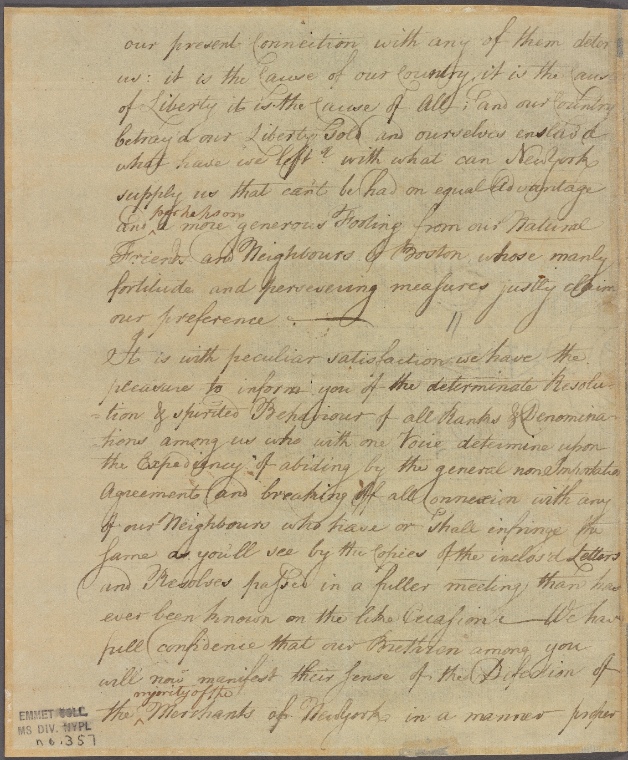 our present Connection with any of them deter
us: it is the Cause of our Country, it is the Caus
of Liberty it is the Cause of All; and our Country
betray'd our Liberty Sold and ourselves enslav'd
what have we left? with what can NewYork
supply us that can't be had on equal Advantage
and perhaps on a more generous Footing from our Natural
Friends and Neighbours of Boston whose manly
fortitude and persevering measures justly claim
our preference
It is with peculiar satisfaction we have the
pleasure to inform you of the determinate Resolu-
-tion & spirited Behaviour of all Ranks & Denomina-
-tions among us who with one Voice determine upon
the Expediency of abiding by the general nonImportation
Agreement and breaking off all Connexion with any
of our Neighbours who have or shall infringe the
same as you'll see by the Copies of the inclos'd Letters
and Resolves passed in a fuller meeting than has
ever been known on the like Occasion We have
full Confidence that our Brethren among you
will now manifest their sense of the Defection of
the majority of the Merchants of NewYork in a manner proper
EMMET COLL.
MS DIV. NYPL
no. 357